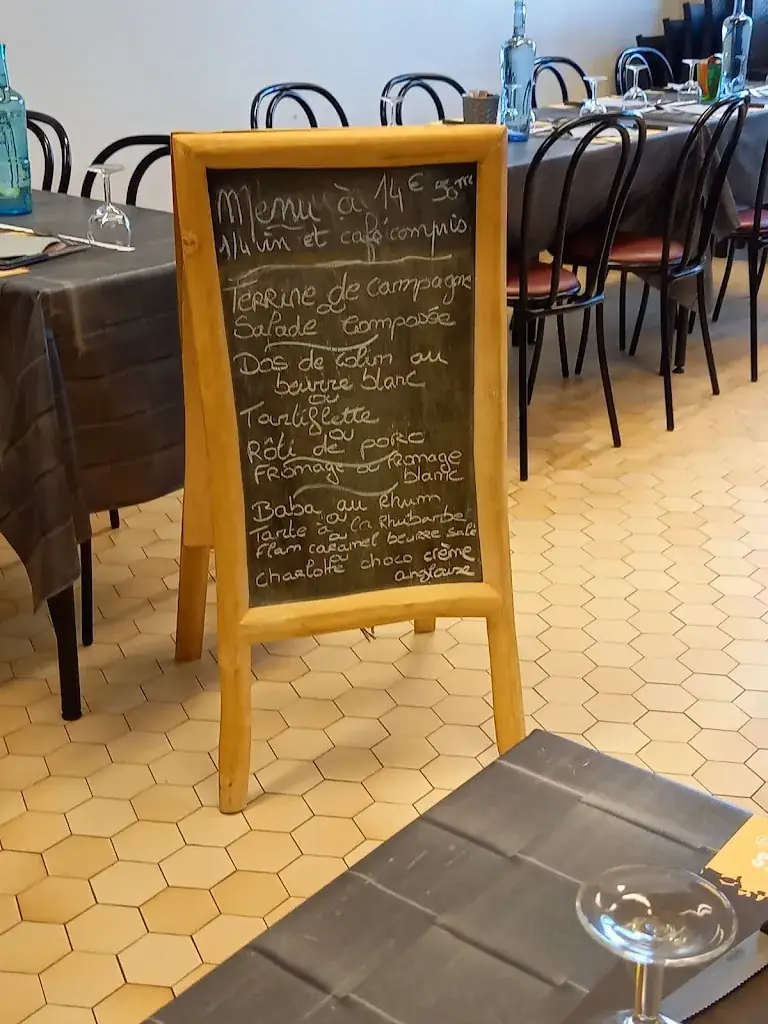 Menu à 14€ 50 TTC
1/4 vin et café compris
Terrine de campagne
Salade composée
Dos de Colin au
beurre blanc
ou
Tartiflette
ou
Rôti de porc
Fromage ou fromage
blanc
Baba au Rhum
ou
Tarte à la Rhubarbe
ou
Flam caramel beurre salé
ou
Charlotte choco crème
anglaise